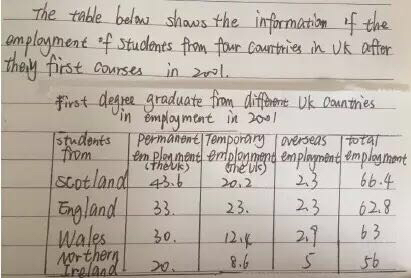 The table below shows the information of the
employment of students from four countries in UK after
their first courses in 2001.
First degree graduate from different UK countries
in employment in 2001
students from | permanent employment (the UK) | Temporary employment (the UK) | overseas employment | total employment
Scotland 43.6 20.2 2.3 66.4
England 33. 23. 2.3 62.8
Wales 30. 12.4 2.9 63
Northern Ireland 20. 8.6 5 56